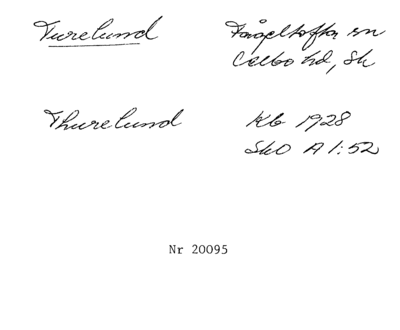 Turelund
Fågeltofta sn
Albo hd, Sk
Thurelund
Kb 1928
SkO A 1:52
Nr 20095